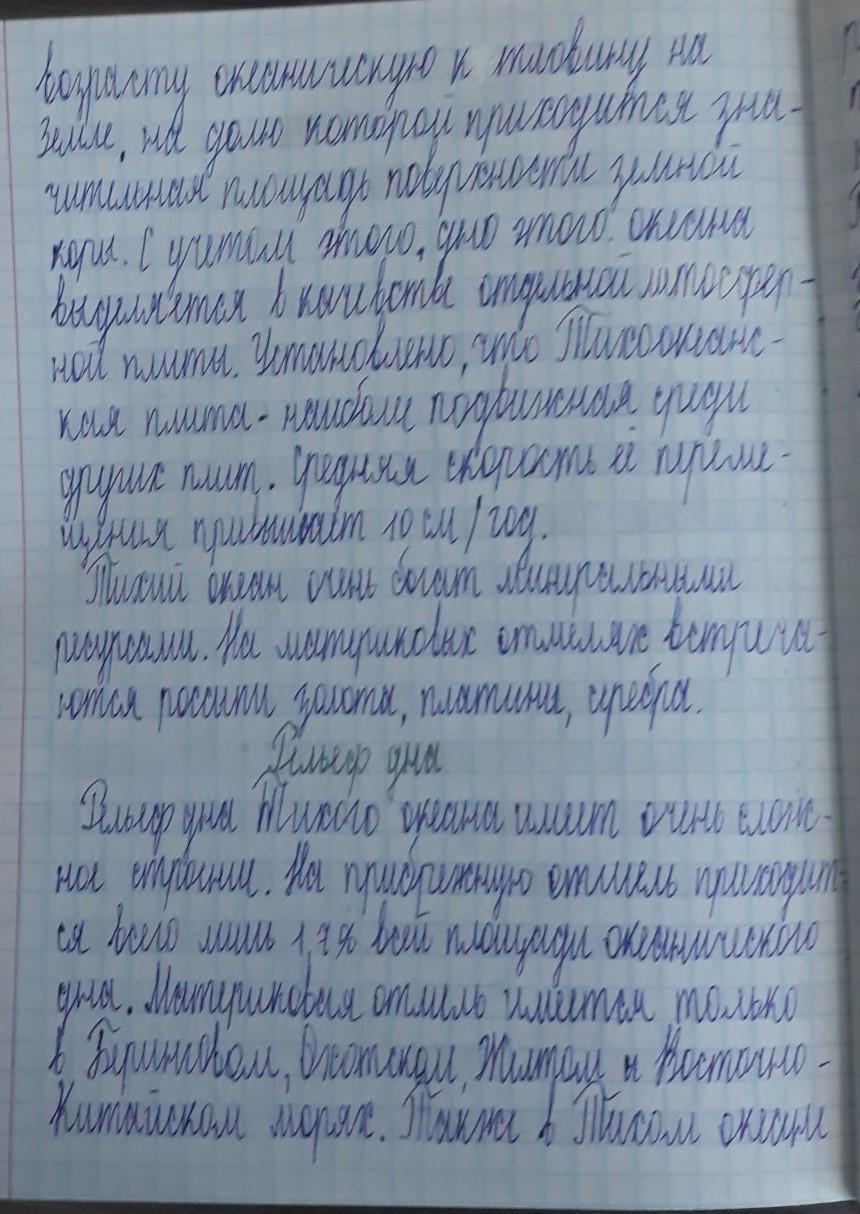 возрасту океаническую к тловину на
Земле, на долю которой приходится зна-
чительная площадь поверхности земной
коры. С учетом этого, дно этого океана
выделяется в качевстве отдельной литосфер-
ной плиты. Установлено, что Тихоокеанс-
кая плита - наиболе подвижная среди
других плит. Средняя скорость её переме-
щения привышает 10 см/год.
Тихий океан очень богат минеральными
ресурсами. На материковых отмелях встреча-
ются россыпи золота, платины, серебра.
Рельеф дна
Рельеф дна Тихого океана имеет очень слож-
ное строение. На прибрежную отмель приходит-
ся всего лишь 1,7% всей площади океанического
дна. Материковая отмель имеется только
в Беринговом, Охотском, Желтом и Восточно-
Китайском морях. Также в Тихом океане